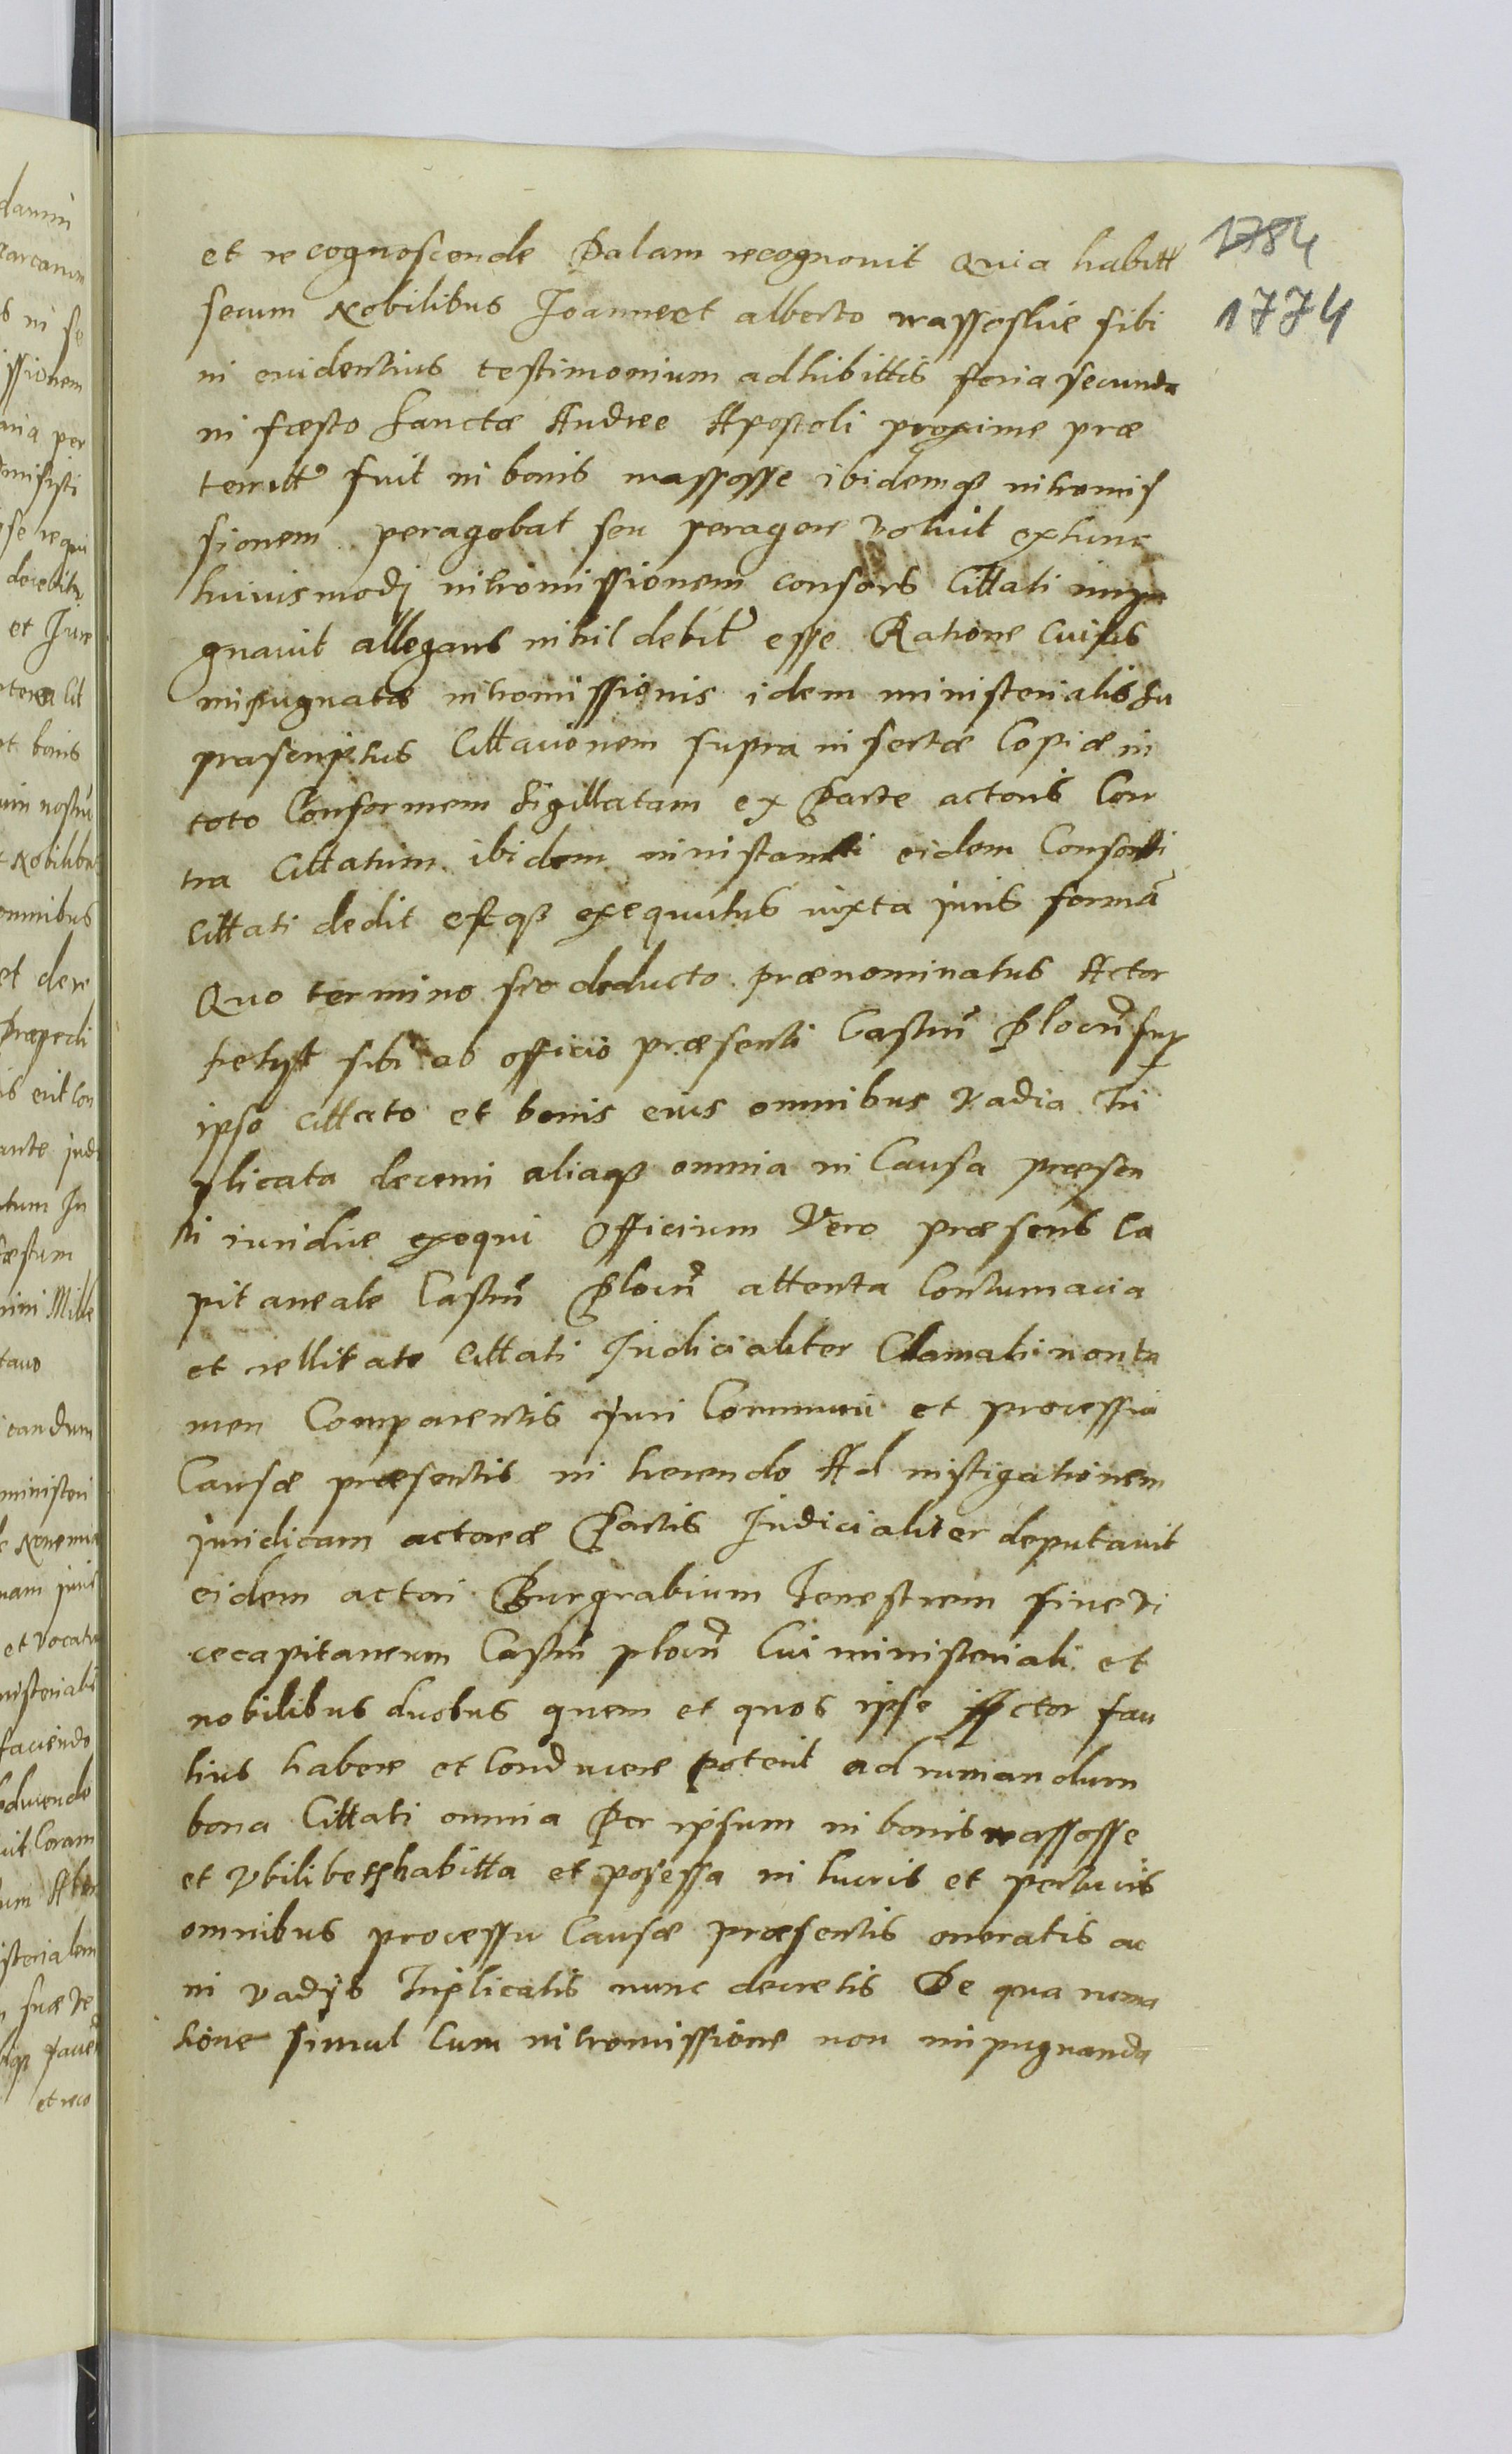 et recognoscende Palam recognovit Quia habitt
secum Nobilibus Joanne et alberto wassoslue sibi
in euidentius testimonium adhibittis feria secunda
in foesto Sanctæ Andree Apostoli proxime præ
territtr fuit in bonis wassosse ibidemqz intromis
sionem peragebat seu peragere voluit extunc
huiusmodj intromissionem consors Cittati impu
gnauit allegans nihil debitr esse Ratione Cuius
impugnatæ intromissionis idem ministerialis Su
prascriptus Cittacionem supra insertæ Copiæ in
toto Conformem Sigillatam ex Parte actoris Con
tra Cittatum ibidem inibi stanti eidem Consorti
Cittati dedit estqz exequutus iuxta juris formã
Quo termino sic deducto prænominatus Actor
petyt sibi ab officio præsenti Castrñ Plocñ sup
ipso cittato et bonis eius omnibus vadia Tri
plicata decerni aliaqz omnia in Causa præsen
ti iuridice exequi Officium Vero præsens Ca
pitaneale Castrñ Plocñ attenta Contumacia
et rellitate Cittati Judicialiter Clamati non ta
men Comparentis Juri Communi et processui
Causæ præsentis in herendo Ad instigationem
juridicam actoreæ Partis Judicialiter deputauit
eidem actori Burgrabium Terrestrem siue vi
cecapitaneum Castrñ plocñ Cui ministeriali et
nobilibus duobus quem et quos ipse Actor faci
lius habere et Conducere poterit ad rumandum
bona Cittati omnia Per ipsum in bonis wassosse
et Vbilibet habitta et possessa in lucris et perlucris
omnibus processu Causæ præsentis oneratis ac
in vadijs Triplicatis nunc decretis De qua ruma
tione simul Cum intromissione non impugnanda
1784
1774